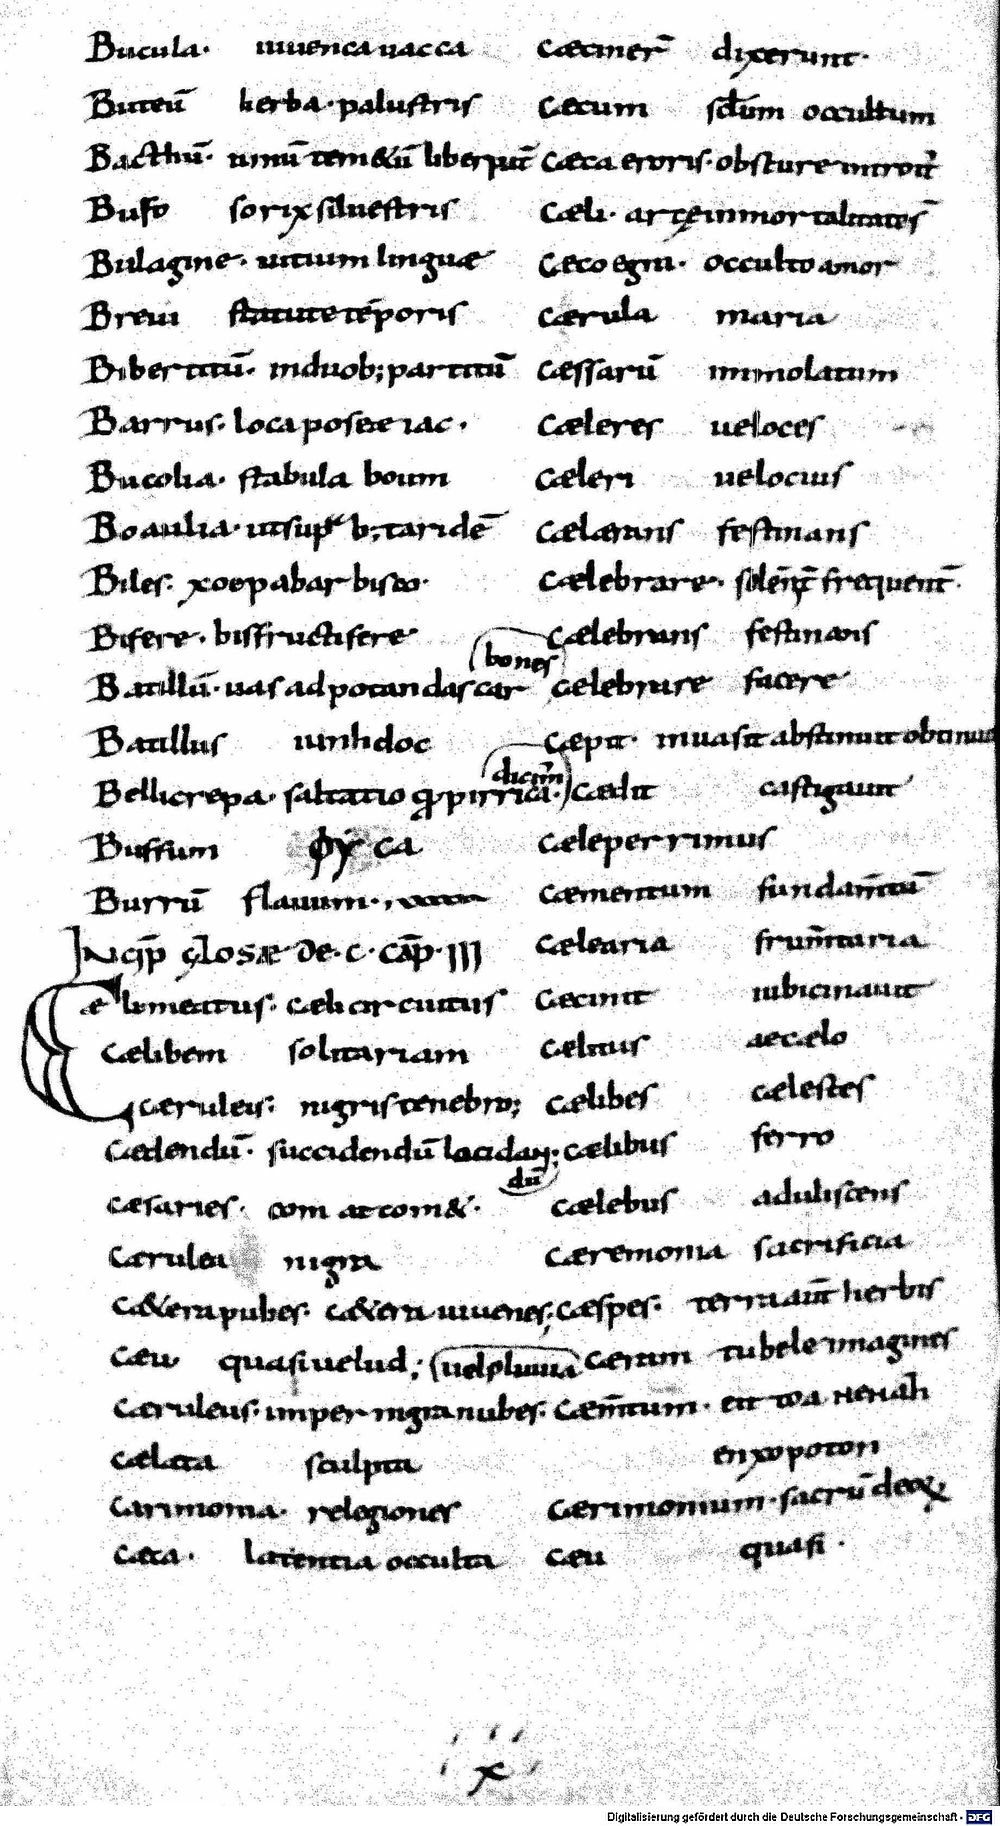 Bucula· iuuenca uacca
Buteū herba·palustris
Bacthū· uinū tem&ū liberpat̄
Bufo sorix siluestris
Bulagine· uitium linguæ
Breui statute tēporis
Bibertitū· induob; partitū
Barrus· loca poseæ iac·
Bucolia· stabula boum
Boaulia· utsup b; taridē
Biles·
Bifere· bisfructifere
Batillū· uas ad potandas car
bones
Batillus
Bellicrepa· saltatio q pirrica·
dicim̄
Buffum ca
Burrū flauum·
INcip̄ gLosæ de·c·cāp·III
Cælomeatus· cæli circuitus
Cælibem solitariam
Cæruleis· nigris tenebro;
Cædendū· succidendū
dū
Cæsaries· com at com&·
Cærulea nigra
C&era pubes· c&era iuuenes;
Cæu quasi uelud; uelpluuia
Cæruleus· imper nigra nubes·
Cælata sculpta
Carimonia· relegiones
Cæca· latentia occulta
Cæciner̄ dixerunt·
Cæcum occultum
Cæca eroris· obscure
Cæli· arce inmortalitates
Cæco egni· occulto amor
Cærula maria
Cæssarū immolatum
Cæleres ueloces
Cæleri uelocius
Cælerans festinans
Cælebrare· frequent̄·
Cælebrans festinans
Cælebrare facere
Cæpit· inuasit abstinuit obtinuit
Cædit castigauit
Cæleperrimus
Cæmentum fundam̄tū
Cælearia frum̄taria
Cæcinit iubicinauit
Cælitus aecælo
Cælibes cælestes
Cælibus ferro
Cælebus aduliscens
Cæremonia sacrificia
Cæspes· terra aut̄ herbis
Cæram tubele imagines
Cæm̄tum·
Cærimonium· sacrū
Cæu quasi·
x
Digitalisierung gefördert durch die Deutsche Forschungsgemeinschaft - DFG